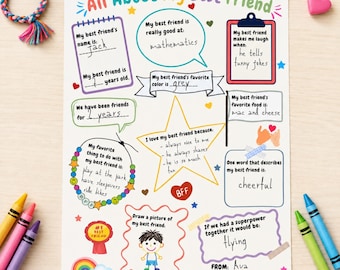 All About My Best Friend
My best friend's
name is:
Jack
My best friend
is years old.
My best friend is
really good at:
mathematics
My best friend
makes me laugh
when:
he tells
funny jokes
My best friend's favorite
color is grey
We have been friends
for years
My best friend's
favorite food is:
mac and cheese
I love my best friend because:
- always nice to me
- he always shares
- he is so much
fun
My favorite
thing to do with
my best friend is:
play at the park
have sleepovers
ride bikes
One word that describes
my best friend is:
cheerful
BFF
#1
BEST
FRIEND
Draw a picture of
my best friend.
If we had a superpower
together it would be:
flying
FROM: Ava